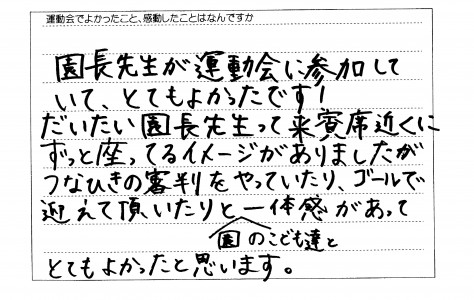 運動会でよかったこと、感動したことはなんですか
園長先生が運動会に参加して
いて、とてもよかったです!
だいたい園長先生って来賓席近くに
ずっと座ってるイメージがありましたが
つなひきの審判をやっていたり、ゴールで
迎えて頂いたりと一体感があって
園のこども達と
とてもよかったと思います。